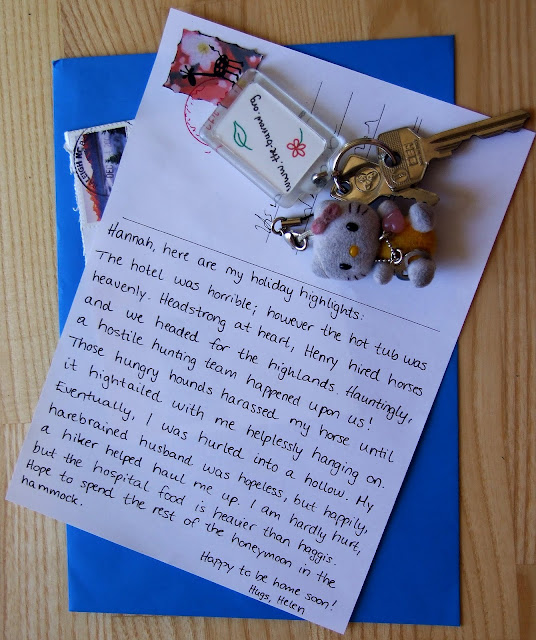 www.the-burrow.org
LEIGH NC
Hannah, here are my holiday highlights:
The hotel was horrible; however the hot tub was
heavenly. Headstrong at heart, Henry hired horses
and we headed for the highlands. Hauntingly,
a hostile hunting team happened upon us!
Those hungry hounds harassed my horse until
it hightailed with me helplessly hanging on.
Eventually, I was hurled into a hollow. My
harebrained husband was hopeless, but happily,
a hiker helped haul me up. I am hardly hurt,
but the hospital food is heavier than haggis.
Hope to spend the rest of the honeymoon in the
hammock.
Happy to be home soon!
Hugs, Helen